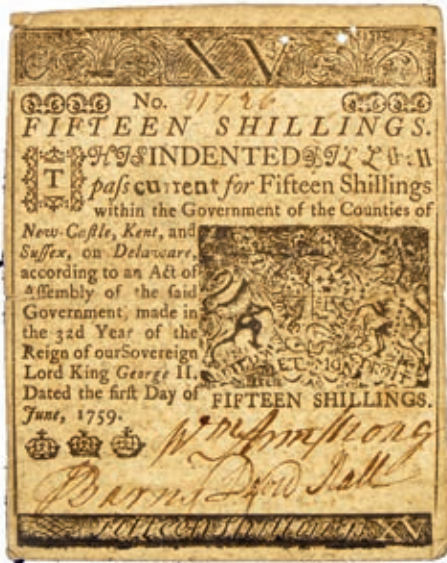 XV
No. 91726
FIFTEEN SHILLINGS.
THIS INDENTED BILL shall
paſs current for Fifteen Shillings
within the Government of the Counties of
New-Caſtle, Kent, and
Suſſex, on Delaware,
according to an Act of
Aſſembly of the ſaid
Government, made in
the 32d Year of the
Reign of our Sovereign
Lord King George II.
Dated the firſt Day of
June, 1759.
DIEU ET MON DROIT
FIFTEEN SHILLINGS.
Wm Armstrong
J Barns David Hall
Fifteen Shillings XV